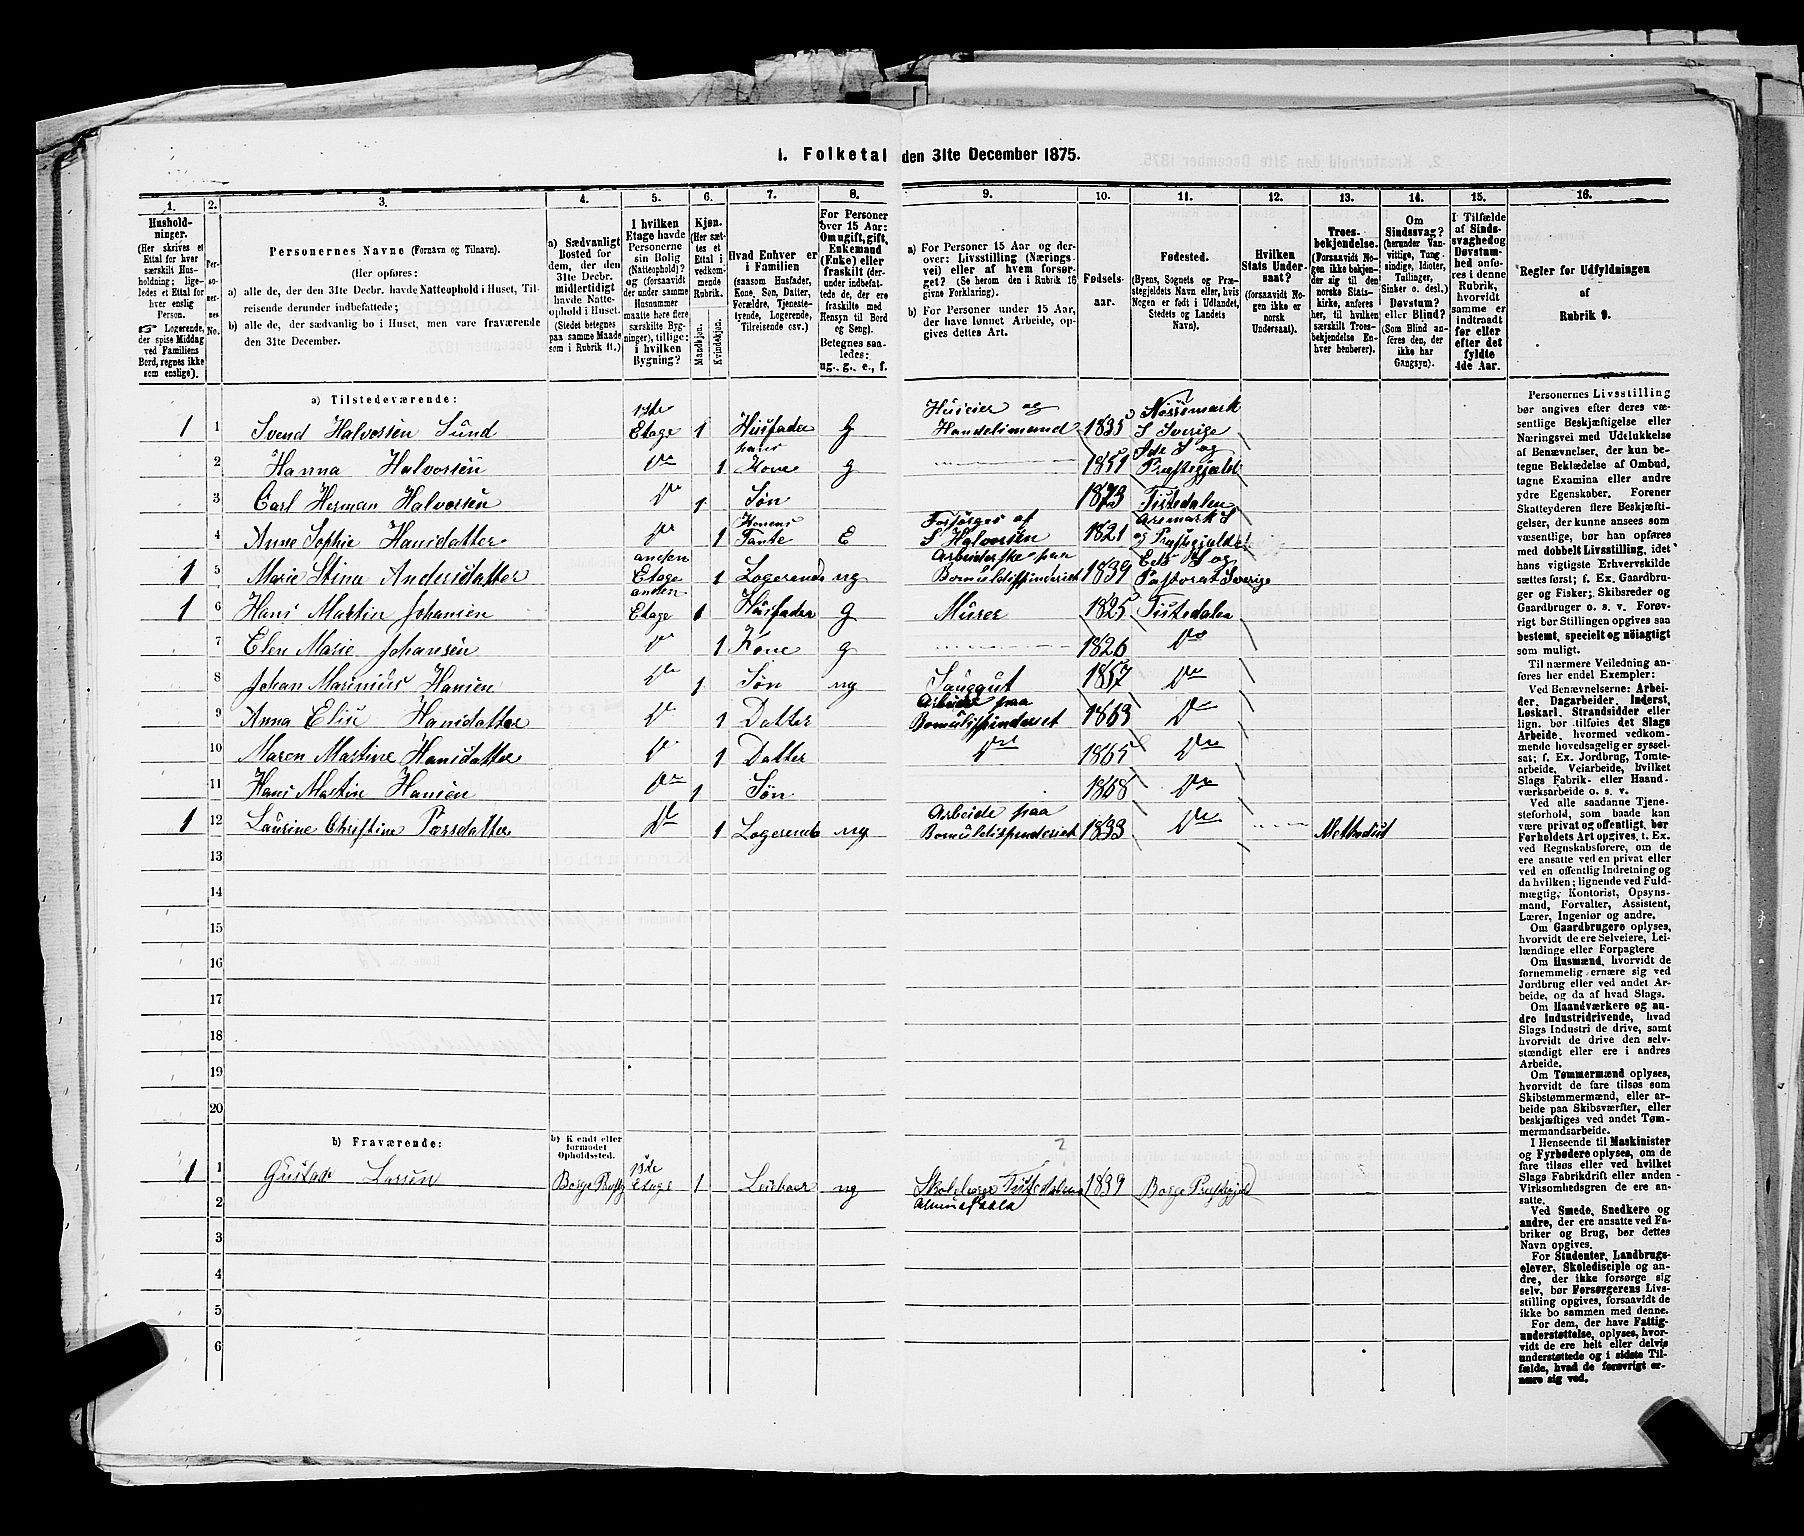 1. Folketal den 31te December 1875.
1.
Hushold-
ninger.
(Her skrives et
Ettal for hver
særskilt Hus-
holdning; lige-
ledes et Ettal
for enslig
Person.
Logerende,
der spise Middag
ved Familiens
Bord, regnes ikke
som enslige).
2.
Per-
so-
ner-
nes
No.
3.
Personernes Navne (Fornavn og Tilnavn).
(Her opføres:
a) alle de, der den 31te Decbr. havde Natteophold i Huset, Til-
reisende derunder indbefattede;
b) alle de, der sædvanlig bo i Huset, men vare fraværende
den 31te December.
4.
a) Sædvanligt
Bosted for
dem, der den
31te Decbr.
midlertidigt
havde Natte-
ophold i Huset.
(Stedet betegnes
paa samme Maade
som i Rubrik 11.)
5.
I hvilken
Etage havde
Personerne
sin Bolig
(Natteophold)?
(forsaavidt
der under samme
Husnummer
maatte høre flere
særskilte Byg-
ninger), tillige:
i hvilken
Bygning?
6.
Kjøn.
(Her sæt-
tes et
Ettal i
vedkom-
mende
Rubrik.
Mandkjøn.
Kvindekjøn.
7.
Hvad Enhver er
i Familien
(saasom Husfader,
Kone, Søn, Datter,
Forældre, Tjeneste-
tyende, Logerende,
Tilreisende osv.)
8.
For Personer
over 15 Aar:
Om ugift, gift,
Enkemand
(Enke) eller
fraskilt (der-
under indbefat-
tede de, der ere
fraskilte med
Hensyn til Bord
og Seng).
Betegnes saa-
ledes:
ug., g., e., f.
9.
a) For Personer 15 Aar og der-
over: Livsstilling (Nærings-
vei) eller af hvem forsør-
get? (Se herom den i Rubrik 16
givne Forklaring).
b) For Personer under 15 Aar,
der have lønnet Arbeide, op-
gives dettes Art.
10.
Fødsels-
aar.
11.
Fødested.
(Byens, Sognets og Præ-
stegjeldets Navn eller, hvis
Nogen er født i Udlandet,
Stedets og Landets
Navn).
12.
Hvilken
Stats Under-
saat?
(forsaavidt No-
gen ikke er
norsk
Undersaat).
13.
Troes-
bekjendelse.
(Forsaavidt No-
gen ikke bekjen-
der sig til den
norske Stats-
kirke, anføres
her, til hvilken
særskilt Troes-
bekjendelse En-
hver henhører).
14.
Om
Sindssvag?
(herunder Van-
vittige, Tung-
sindige, Idioter,
Tullinger,
Sinker o. desl.).
Døvstum?
eller Blind?
(Som Blind an-
føres den, der
ikke har
Gangsyn).
15.
I Tilfælde
af Sinds-
svaghed og
Døvstum-
hed anfø-
res i denne
Rubrik,
hvorvidt
samme er
indtraadt
før eller
efter det
fyldte
4de Aar.
16.
Regler for Udfyldningen
af
Rubrik 9.
a) Tilstedeværende:
1 1 Svend Halvorsen Sund 1ste Etage 1 Husfader g Huseier og Handelsmand 1835 Nøssemark S Sverige
2 Hanna Halvorsen Do 1 hans Kone g 1851 Ide S og Præstegjæld
3 Carl Herman Halvorsen Do 1 Søn 1873 Tistedalen
4 Anne Sophie Hansdatter Do 1 Konens Tante E Forsørges af S Halvorsen 1821 Aremark S og Præstegjeld
1 5 Marie Stina Andersdatter anden Etage 1 Logerende ug Arbeiderske paa Bomuldsspinderiet 1839 Eds S og Pastorat Sverige
1 6 Hans Martin Johansen anden Etage 1 Husfader g Murer 1825 Tistedalen
7 Elen Marie Johansen Do 1 Kone g 1826 Do
8 Johan Marinius Hansen Do 1 Søn ug Sauggut 1857 Do
9 Anna Elise Hansdatter Do 1 Datter Arbeide paa Bomuldsspinderiet 1863 Do
10 Maren Martine Hansdatter Do 1 Datter Do 1865 Do
11 Hans Martin Hansen Do 1 Søn 1868 Do
1 12 Laurine Christine Larsdatter Do 1 Logerende ug Arbeide paa Bomuldsspinderiet 1833 Do Methodist
13
14
15
16
17
18
19
20
b) Fraværende:
b) Kjendt eller
formodet
Opholdssted.
1 1 Gustav Larsen Borge Præstg 1ste Etage 1 Leieboer ug Skolelærer Tistedalens Almueskole 1839 Borge Præstegjeld
2
3
4
5
6
Personernes Livsstilling
bør angives efter deres væ-
sentlige Beskjæftigelse eller
Næringsvei med Udelukkelse
af Benævnelser, der kun be-
tegne Beklædelse af Ombud,
tagne Examina eller andre
ydre Egenskaber. Forener
Skatteyderen flere Beskjæfti-
gelser, der kunne ansees som
væsentlige, bør han opføres
med dobbelt Livsstilling, idet
hans vigtigste Erhvervskilde
sættes først; f. Ex. Gaardbru-
ger og Fisker; Skibsreder og
Gaardbruger o. s. v. Forøv-
rigt bør Stillingen opgives saa
bestemt, specielt og nøiagtigt
som muligt.
Til nærmere Veiledning an-
føres her endel Exempler:
Ved Benævnelserne: Arbei-
der, Dagarbeider, Inderst,
Løskarl, Strandsidder eller
lign. bør tilføies det Slags
Arbeide, hvormed vedkom-
mende hovedsagelig er syssel-
sat; f. Ex. Jordbrug, Tomte-
arbeide, Veiarbeide, hvilket
Slags Fabrik- eller Haand-
værksarbeide o. s. v.
Ved alle saadanne Tjene-
steforhold, som baade kan
være privat og offentligt, bør
Forholdets Art opgives, t. Ex.
ved Regnskabsførere, om de
ere ansatte ved en privat eller
ved en offentlig Indretning og
da hvilken; lignende ved Fuld-
mægtig, Kontorist, Opsyns-
mand, Forvalter, Assistent,
Lærer, Ingeniør og andre.
Om Gaardbrugere oplyses,
hvorvidt de ere Selveiere, Lei-
lændinge eller Forpagtere
Om Husmænd, hvorvidt de
fornemmelig ernære sig ved
Jordbrug eller ved andet Ar-
beide, og da af hvad Slags.
Om Haandværkere og an-
dre Industridrivende, hvad
Slags Industri de drive, samt
hvorvidt de drive den selv-
stændigt eller ere i andres
Arbeide.
Om Tømmermænd oplyses,
hvorvidt de fare tilsøs som
Skibstømmermænd, eller ar-
beide paa Skibsværfter, eller
beskjæftiges ved andet Tøm-
mermandsarbeide.
I Henseende til Maskinister
og Fyrbødere oplyses, om de
fare tilsøs eller ved hvilket
Slags Fabrikdrift eller anden
Virksomhedsgren de ere an-
satte.
Ved Smede, Snedkere og
andre, der ere ansatte ved Fa-
briker og Brug, bør dettes
Navn opgives.
For Studenter, Landbrugs-
elever, Skoledisciple og an-
dre, der ikke forsørge sig
selv, bør Forsørgerens Livs-
stilling opgives, forsaavidt de
ikke bo sammen med denne.
For dem, der have Fattig-
understøttelse, oplyses, hvor-
vidt de ere helt eller delvis
understøttede og i sidste Til-
fælde, hvad de forøvrigt er-
nære sig ved.